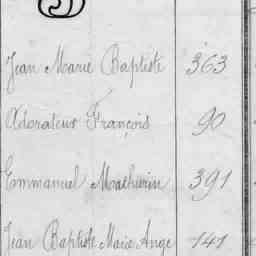 Jean Marie Baptiste 363
Adorateur François 90
Emmanuel Mathurin 391
Jean Baptiste Marie Ange 141